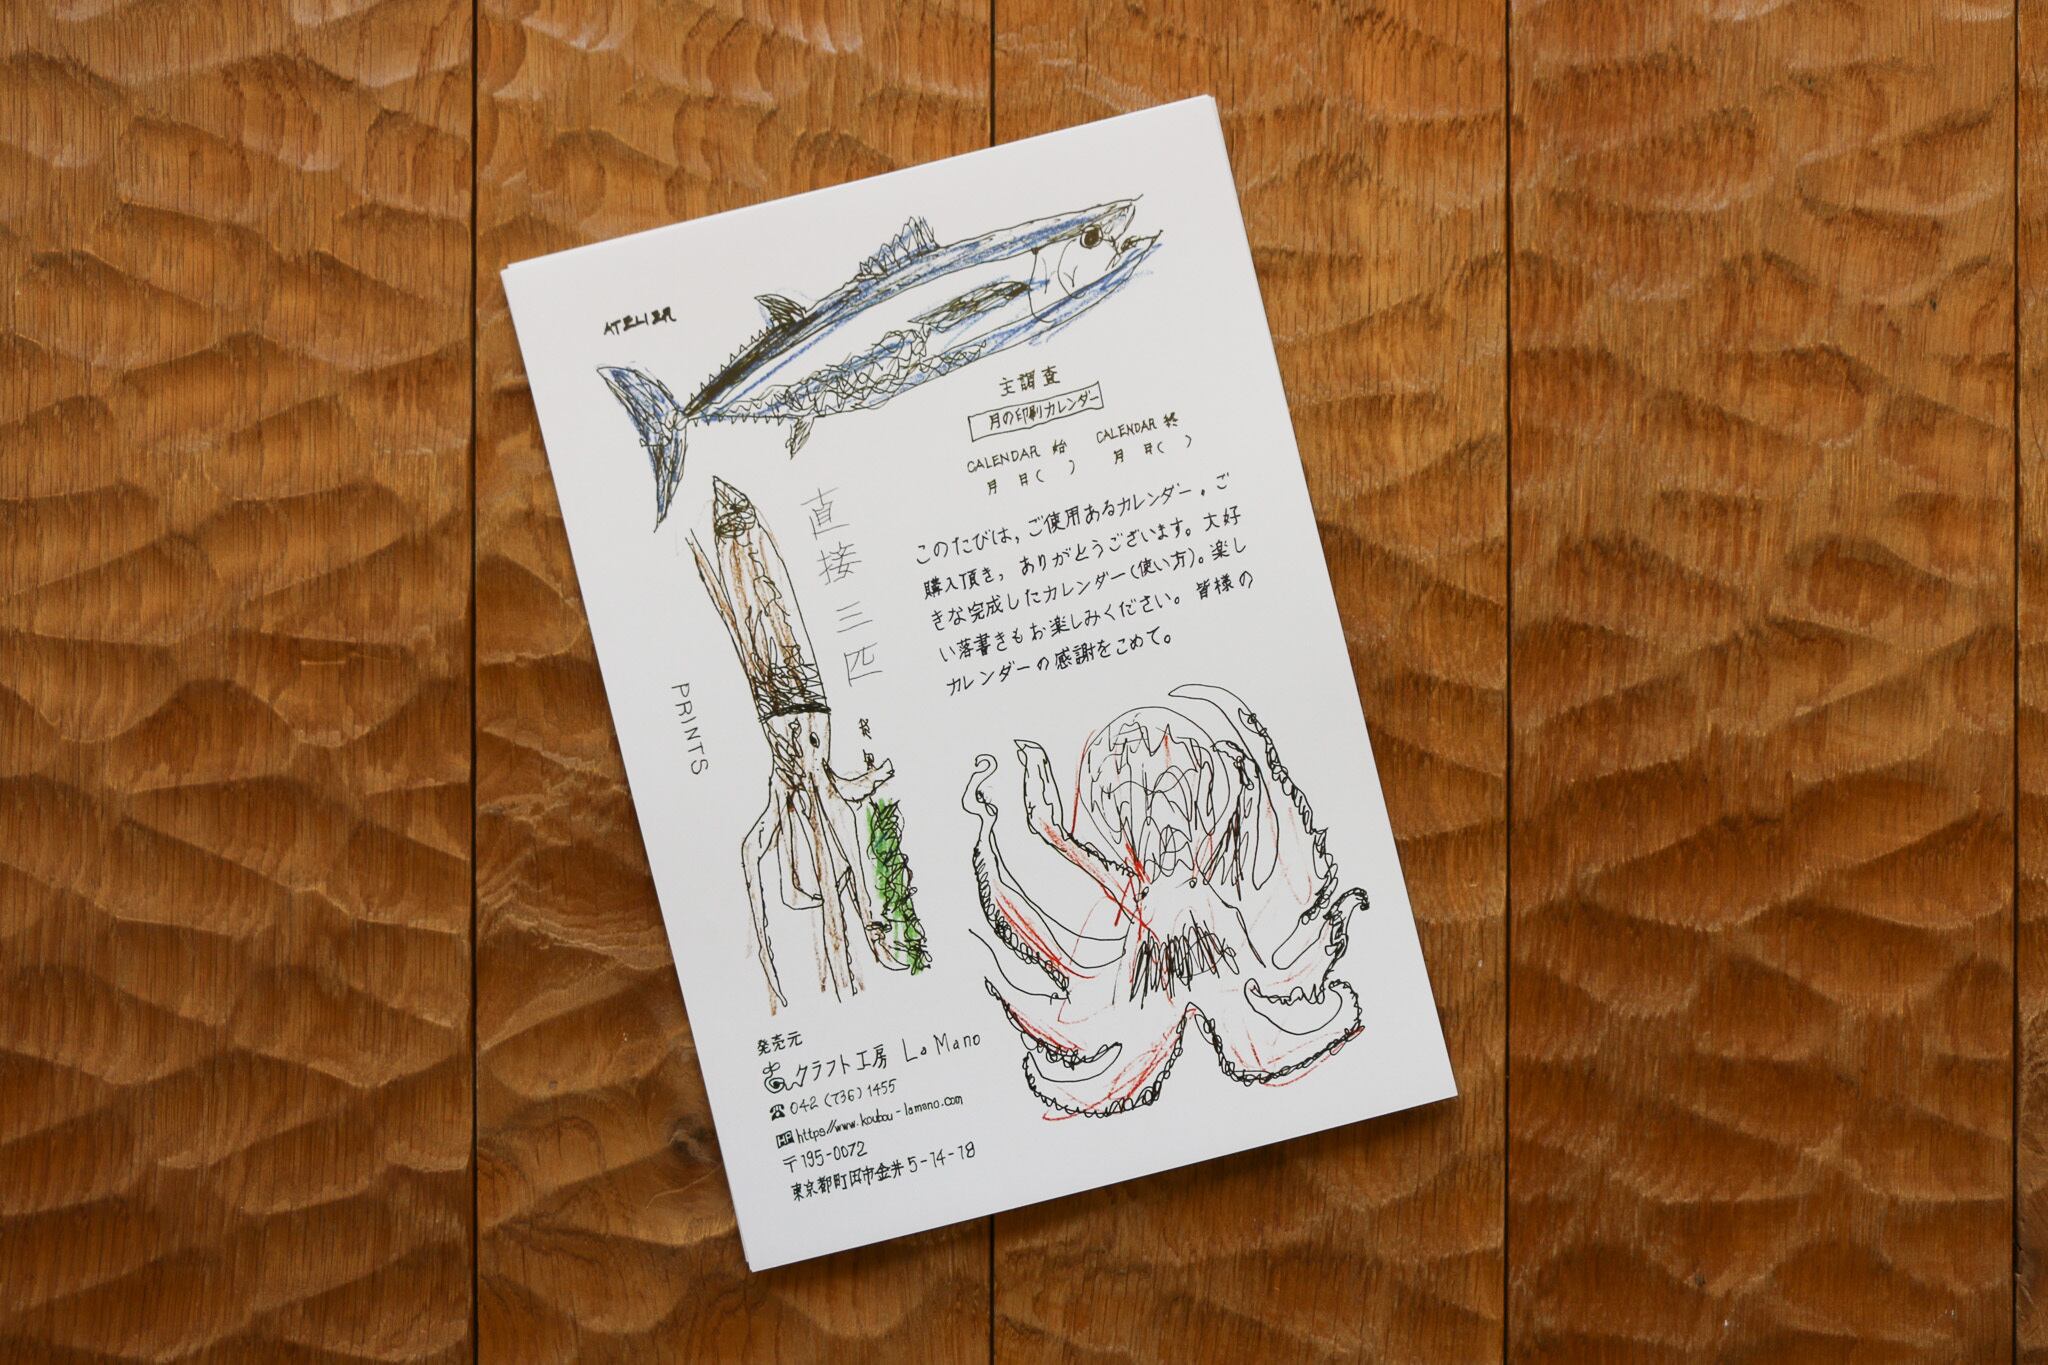 ATELIER
主調査
月の印刷カレンダー
CALENDAR 始
月 日( )
CALENDAR 終
月 日( )
このたびは,ご使用あるカレンダー。ご
購入頂き,ありがとうございます。大好
きな完成したカレンダー(使い方)。楽し
い落書きもお楽しみください。皆様の
カレンダーの感謝をこめて。
直接三匹
PRINTS
発売元
クラフト工房 La Mano
☎042(736)1455
HP https://www.koubou-lamano.com
〒195-0072
東京都町田市金井5-14-18